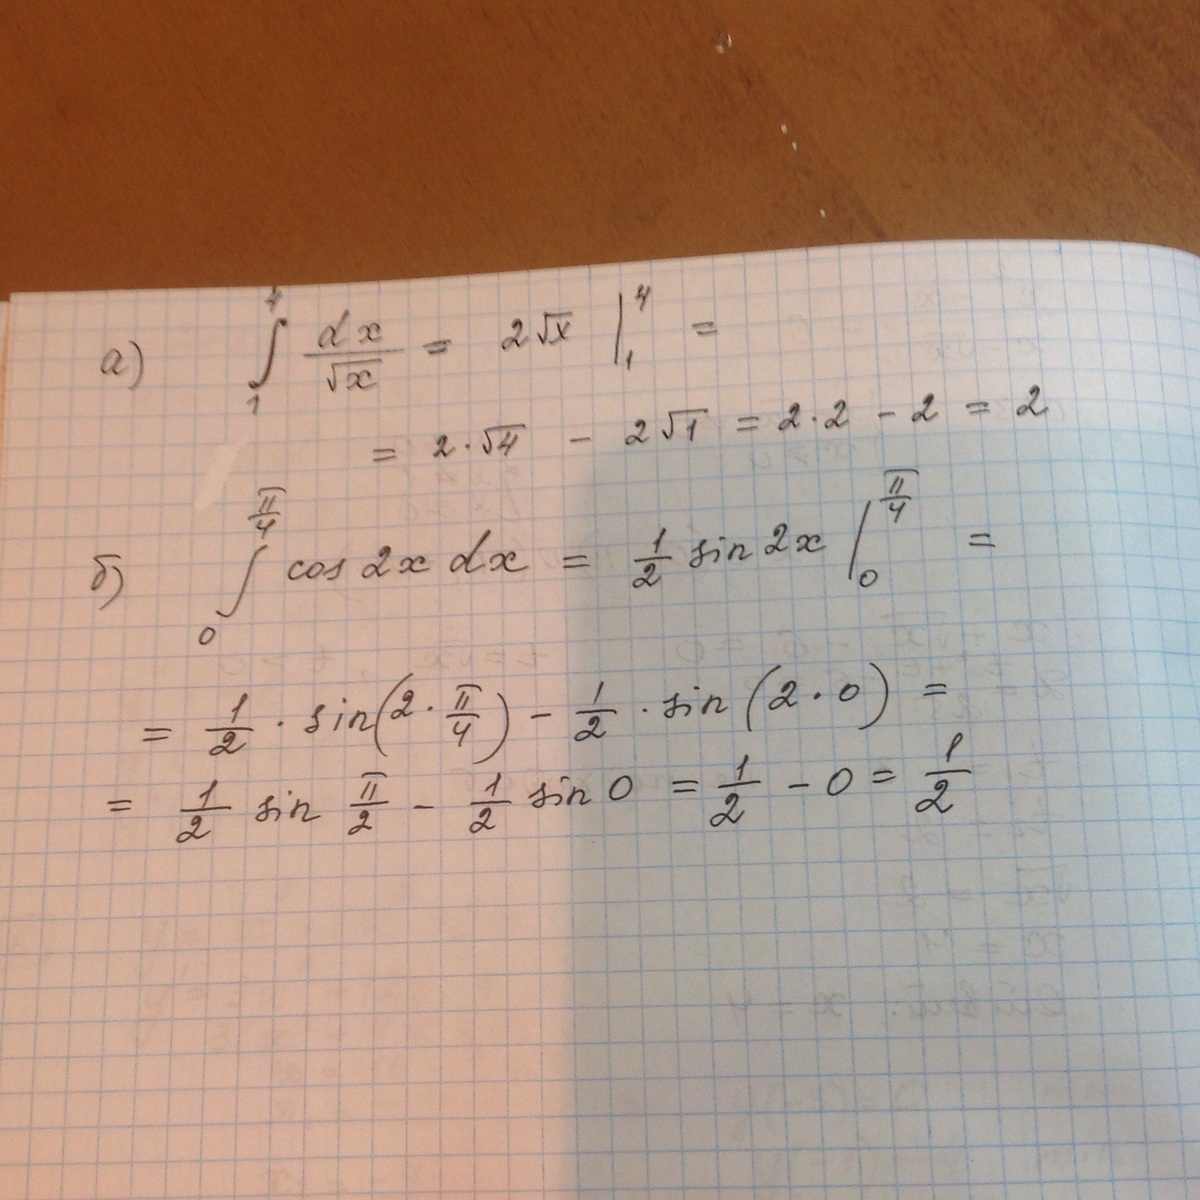 а) ∫₁⁴ dx/√x = 2√x |₁⁴ =
= 2·√4 − 2√1 = 2·2 − 2 = 2
б) ∫₀^(π/4) cos 2x dx = 1/2 sin 2x |₀^(π/4) =
= 1/2 · sin(2·π/4) − 1/2 · sin(2·0) =
= 1/2 sin π/2 − 1/2 sin 0 = 1/2 − 0 = 1/2